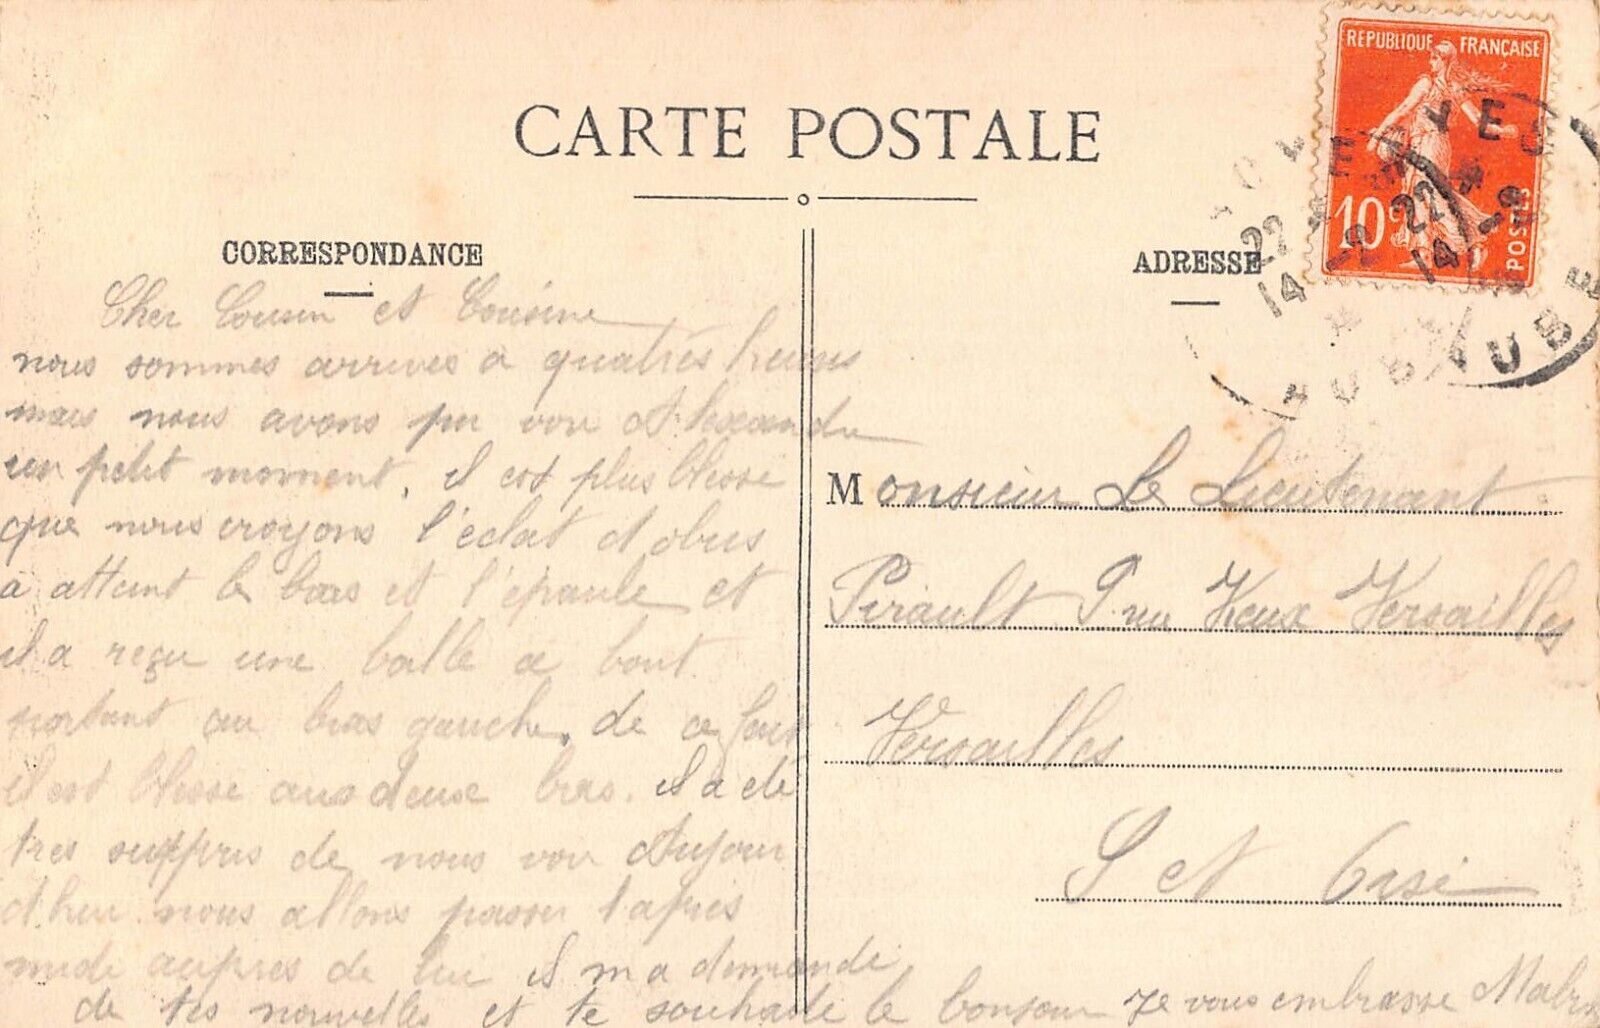 CARTE POSTALE
REPUBLIQUE FRANÇAISE
10c
POSTES
TROYES
22 * 22 *
14 -9 14 -9
AUBE AUBE
CORRESPONDANCE
Cher Cousin et Cousine
nous sommes arrives a quatres heures
mais nous avons pu voir Alexandre
un petit moment. il est plus blesse
que nous croyons l'eclat d obus
a atteint le bras et l'épaule et
il a reçu une balle a bout
portant au bras gauche. de ce fait
il est blesse aus deux bras. il a ete
tres suppris de nous voir Aujour
d heu nous allons passer l apres
mide aupres de lui il m a demande
de tes nouvelles et te souhaite le bonsoir je vous embrasse
ADRESSE
Monsieur Le Lieutenant
Pirault 9 rue Vieux Versailles
Versailles
S et Oise